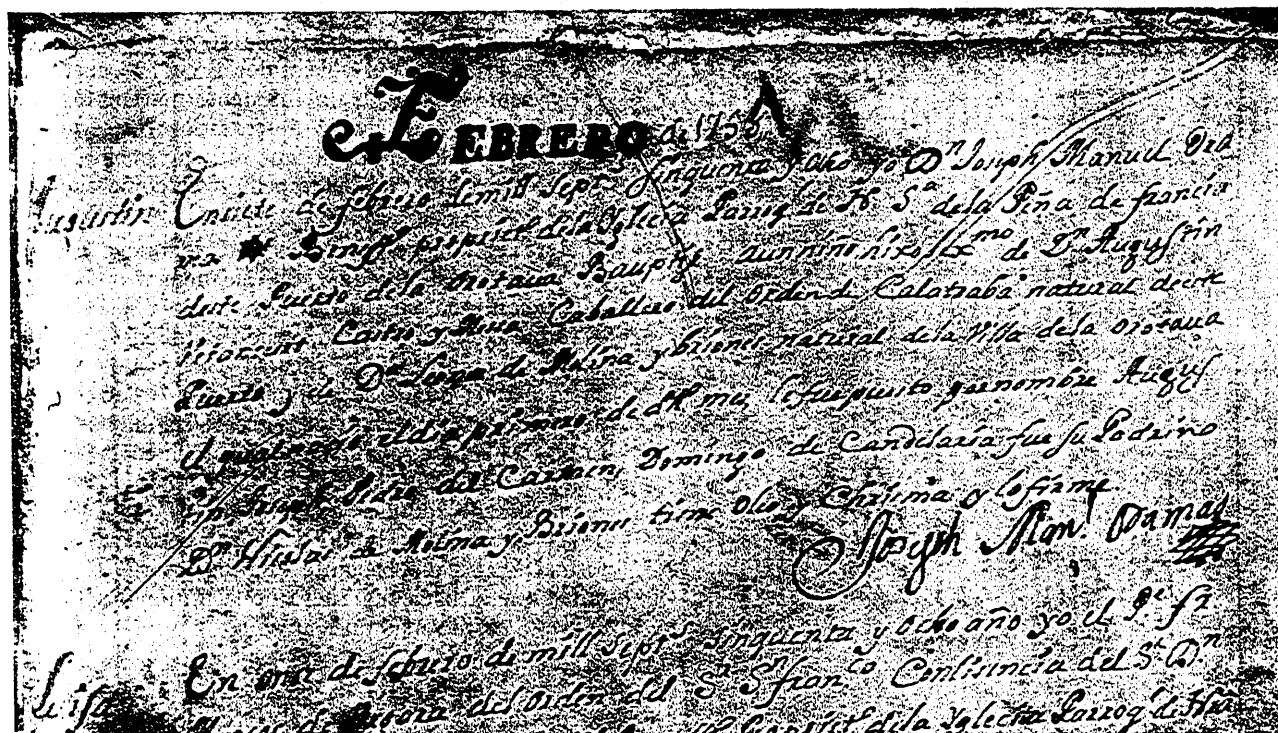 FEBRERO de 1758
Augustin
En siete de febrero de mill septs. sinquenta y ocho yo Dn Joseph Manuel Dra
ma Benefdo propriet. de la Yglecia Parroq de N. Sa de la Peña de francia
deste Puerto de la orotava Baupte a un niño hixo lexmo de Dn Augustin
Betancurt Castro y Caballero del orden de Calatraba natural deste
Puerto y de Da de Molina y briones natural de la Villa de la orotava
el qual nasio al dia primero de dho mes le fue puesto por nombre Augus
tin Joseph Pedro del Carmen, Domingo de Candelaria fue su Padrino
Dn de Molina y Briones tiene Oleo y Chrisma y lo firme
Joseph Man.l Damas
En onse de febrero de mill septs sinquenta y ocho año yo el Pe fr
del orden del Sr Sn franco Con lisencia del Sr Dn
de la Yglecia Parroq de Nra